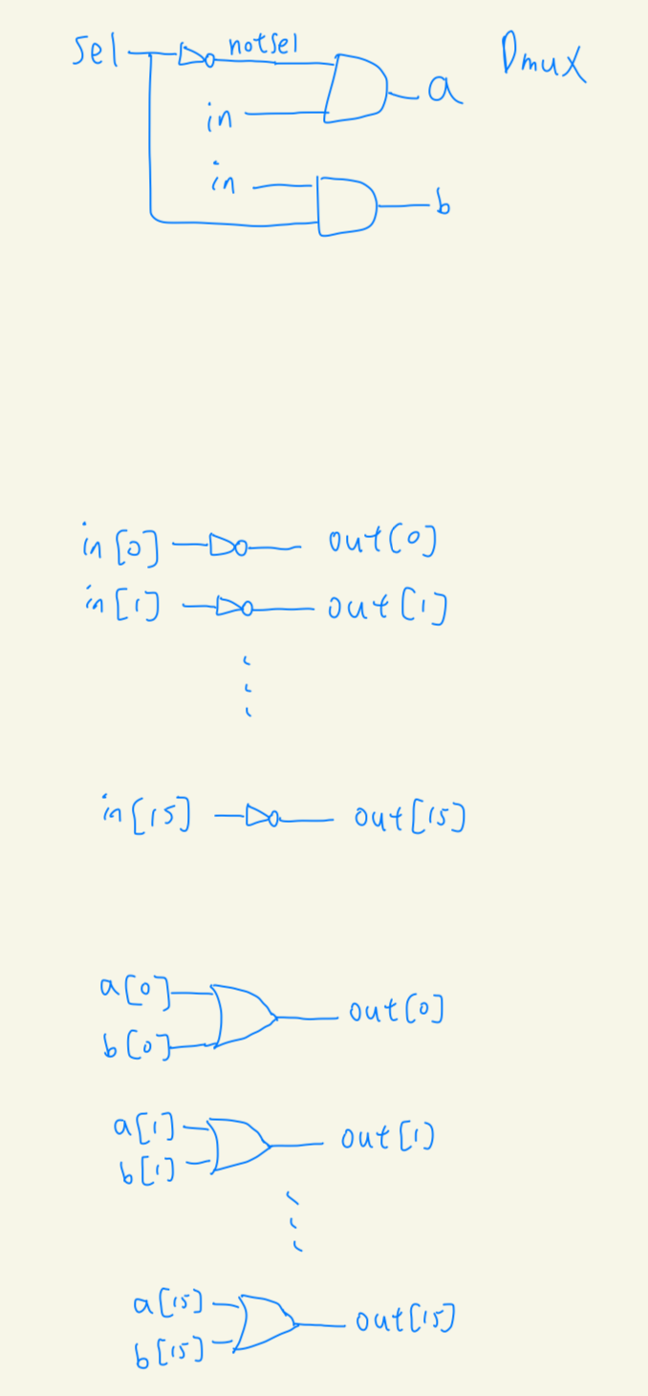 Sel notsel Dmux
a
in
in
b
in[0] out[0]
in[1] out[1]
in[15] out[15]
a[0]
out[0]
b[0]
a[1]
out[1]
b[1]
a[15]
out[15]
b[15]